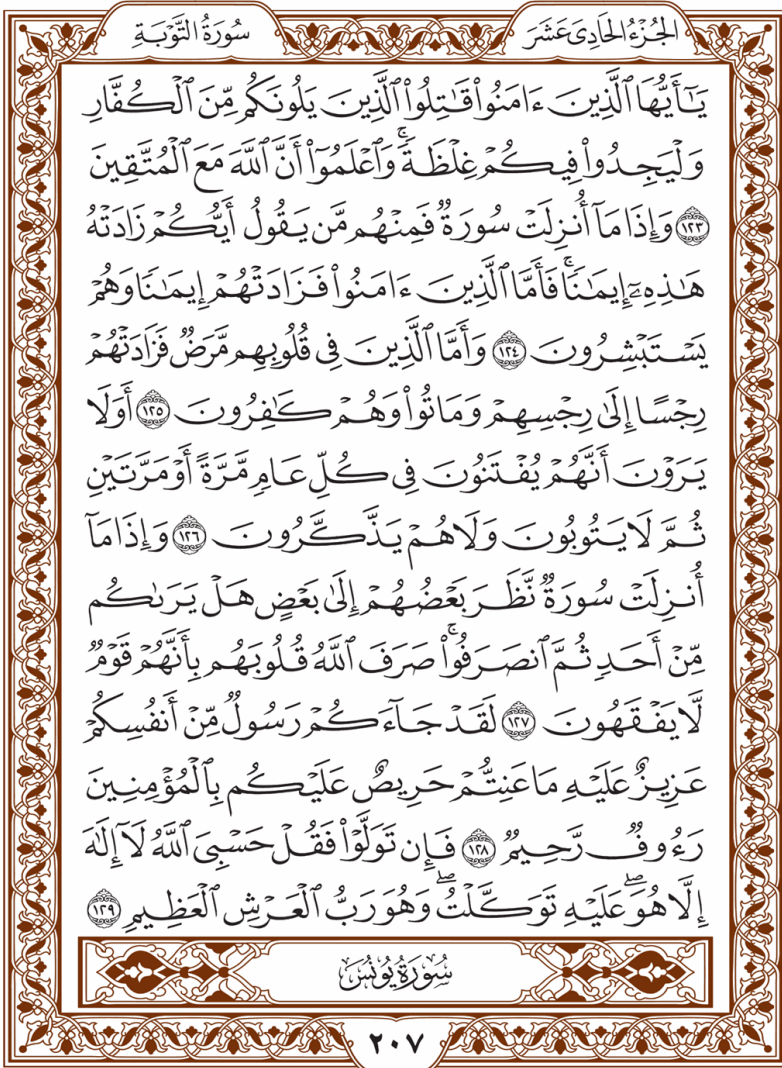 الجُزْءُ الحَادِي عَشَرَ
سُورَةُ التَّوْبَةِ
يَـٰٓأَيُّهَا ٱلَّذِينَ ءَامَنُواْ قَـٰتِلُواْ ٱلَّذِينَ يَلُونَكُم مِّنَ ٱلْكُفَّارِ
وَلْيَجِدُواْ فِيكُمْ غِلْظَةًۚ وَٱعْلَمُوٓاْ أَنَّ ٱللَّهَ مَعَ ٱلْمُتَّقِينَ
١٢٣ وَإِذَا مَآ أُنزِلَتْ سُورَةٌ فَمِنْهُم مَّن يَقُولُ أَيُّكُمْ زَادَتْهُ
هَـٰذِهِۦٓ إِيمَـٰنًاۚ فَأَمَّا ٱلَّذِينَ ءَامَنُواْ فَزَادَتْهُمْ إِيمَـٰنًا وَهُمْ
يَسْتَبْشِرُونَ ١٢٤ وَأَمَّا ٱلَّذِينَ فِى قُلُوبِهِم مَّرَضٌ فَزَادَتْهُمْ
رِجْسًا إِلَىٰ رِجْسِهِمْ وَمَاتُواْ وَهُمْ كَـٰفِرُونَ ١٢٥ أَوَلَا
يَرَوْنَ أَنَّهُمْ يُفْتَنُونَ فِى كُلِّ عَامٍ مَّرَّةً أَوْ مَرَّتَيْنِ
ثُمَّ لَا يَتُوبُونَ وَلَا هُمْ يَذَّكَّرُونَ ١٢٦ وَإِذَا مَآ
أُنزِلَتْ سُورَةٌ نَّظَرَ بَعْضُهُمْ إِلَىٰ بَعْضٍ هَلْ يَرَىٰكُم
مِّنْ أَحَدٍ ثُمَّ ٱنصَرَفُواْۚ صَرَفَ ٱللَّهُ قُلُوبَهُم بِأَنَّهُمْ قَوْمٌ
لَّا يَفْقَهُونَ ١٢٧ لَقَدْ جَآءَكُمْ رَسُولٌ مِّنْ أَنفُسِكُمْ
عَزِيزٌ عَلَيْهِ مَا عَنِتُّمْ حَرِيصٌ عَلَيْكُم بِٱلْمُؤْمِنِينَ
رَءُوفٌ رَّحِيمٌ ١٢٨ فَإِن تَوَلَّوْاْ فَقُلْ حَسْبِىَ ٱللَّهُ لَآ إِلَـٰهَ
إِلَّا هُوَۖ عَلَيْهِ تَوَكَّلْتُۖ وَهُوَ رَبُّ ٱلْعَرْشِ ٱلْعَظِيمِ ١٢٩
سُورَةُ يُونُسَ
٢٠٧